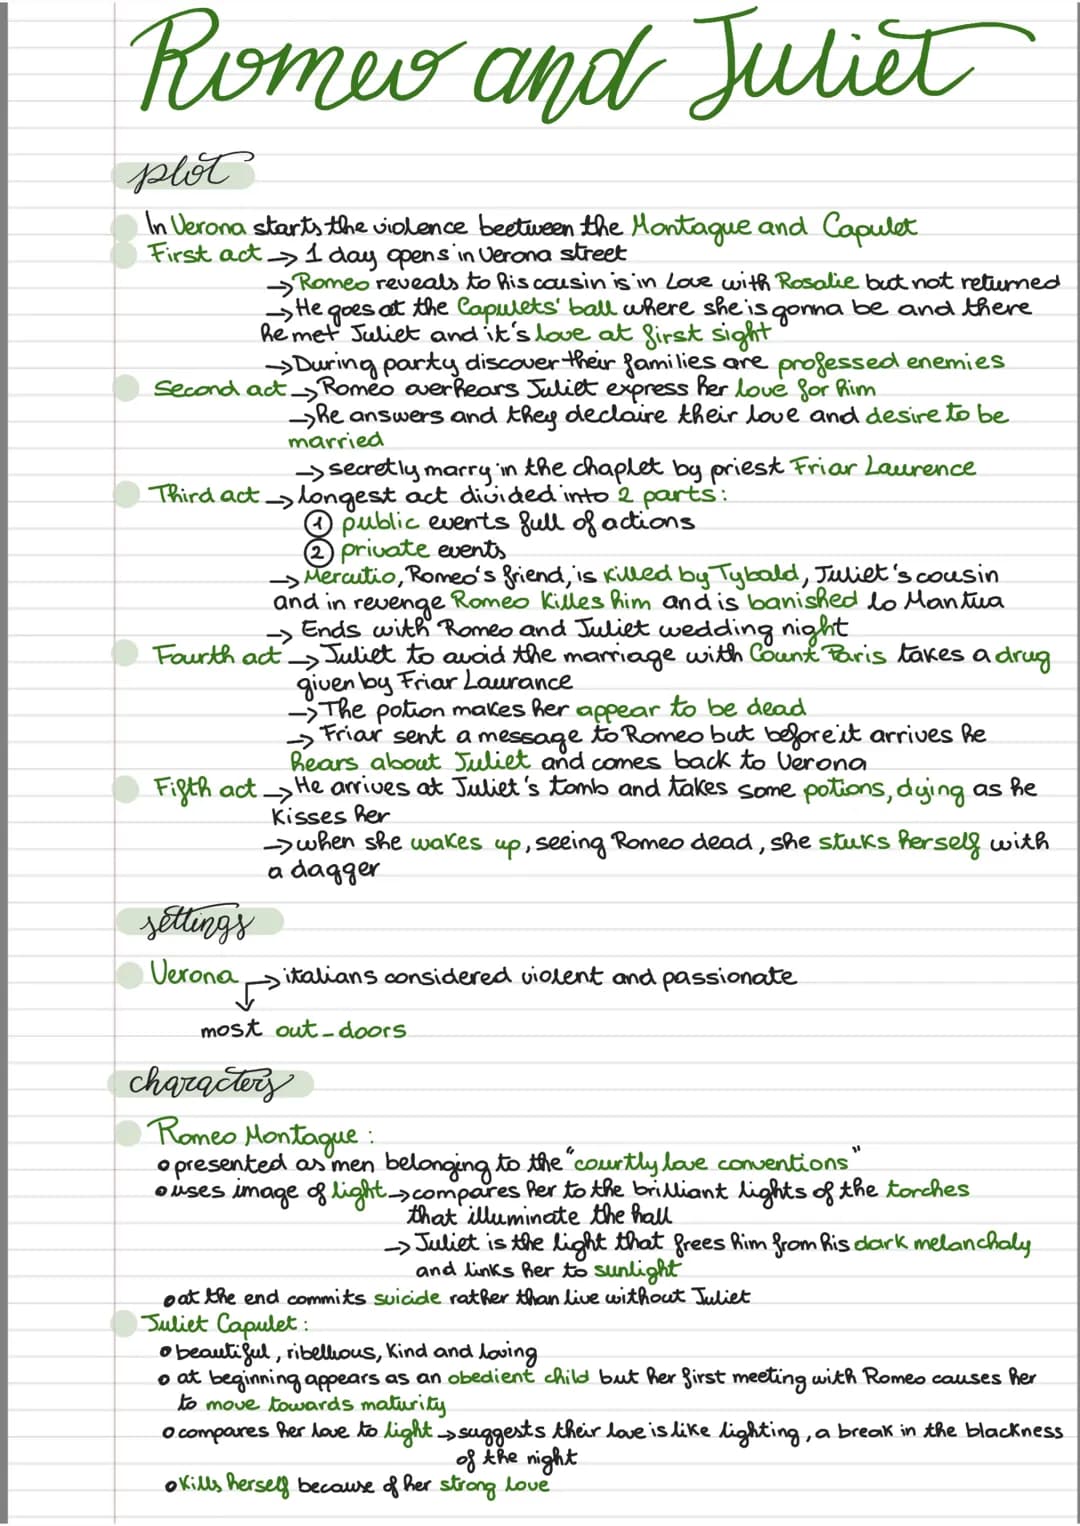 Romeo and Juliet
plot
In Verona starts the violence beetween the Montague and Capulet
First act → 1 day opens in Verona street
→ Romeo reveals to his cousin is in love with Rosalie but not returned
→ He goes at the Capulets' ball where she is gonna be and there
he met Juliet and it's love at first sight
→ During party discover their families are professed enemies
Second act → Romeo overhears Juliet express her love for him
→ he answers and they declaire their love and desire to be
married
→ secretly marry in the chaplet by priest Friar Laurence
Third act → longest act divided into 2 parts:
① public events full of actions
② private events
→ Mercutio, Romeo's friend, is killed by Tybald, Juliet's cousin
and in revenge Romeo killes him and is banished to Mantua
→ Ends with Romeo and Juliet wedding night
Fourth act → Juliet to avoid the marriage with Count Paris takes a drug
given by Friar Laurance
→ The potion makes her appear to be dead
→ Friar sent a message to Romeo but before it arrives he
hears about Juliet and comes back to Verona
Fifth act → He arrives at Juliet's tomb and takes some potions, dying as he
kisses her
→ when she wakes up, seeing Romeo dead, she stuks herself with
a dagger
settings
Verona → italians considered violent and passionate
↓
most out-doors
characters
Romeo Montague:
• presented as men belonging to the "courtly love conventions"
• uses image of light → compares her to the brilliant lights of the torches
that illuminate the hall
→ Juliet is the light that frees him from his dark melanchaly
and links her to sunlight
• at the end commits suicide rather than live without Juliet
Juliet Capulet:
• beautiful, ribellious, kind and loving
• at beginning appears as an obedient child but her first meeting with Romeo causes her
to move towards maturity
• compares her love to light → suggests their love is like lighting, a break in the blackness
of the night
• kills herself because of her strong love